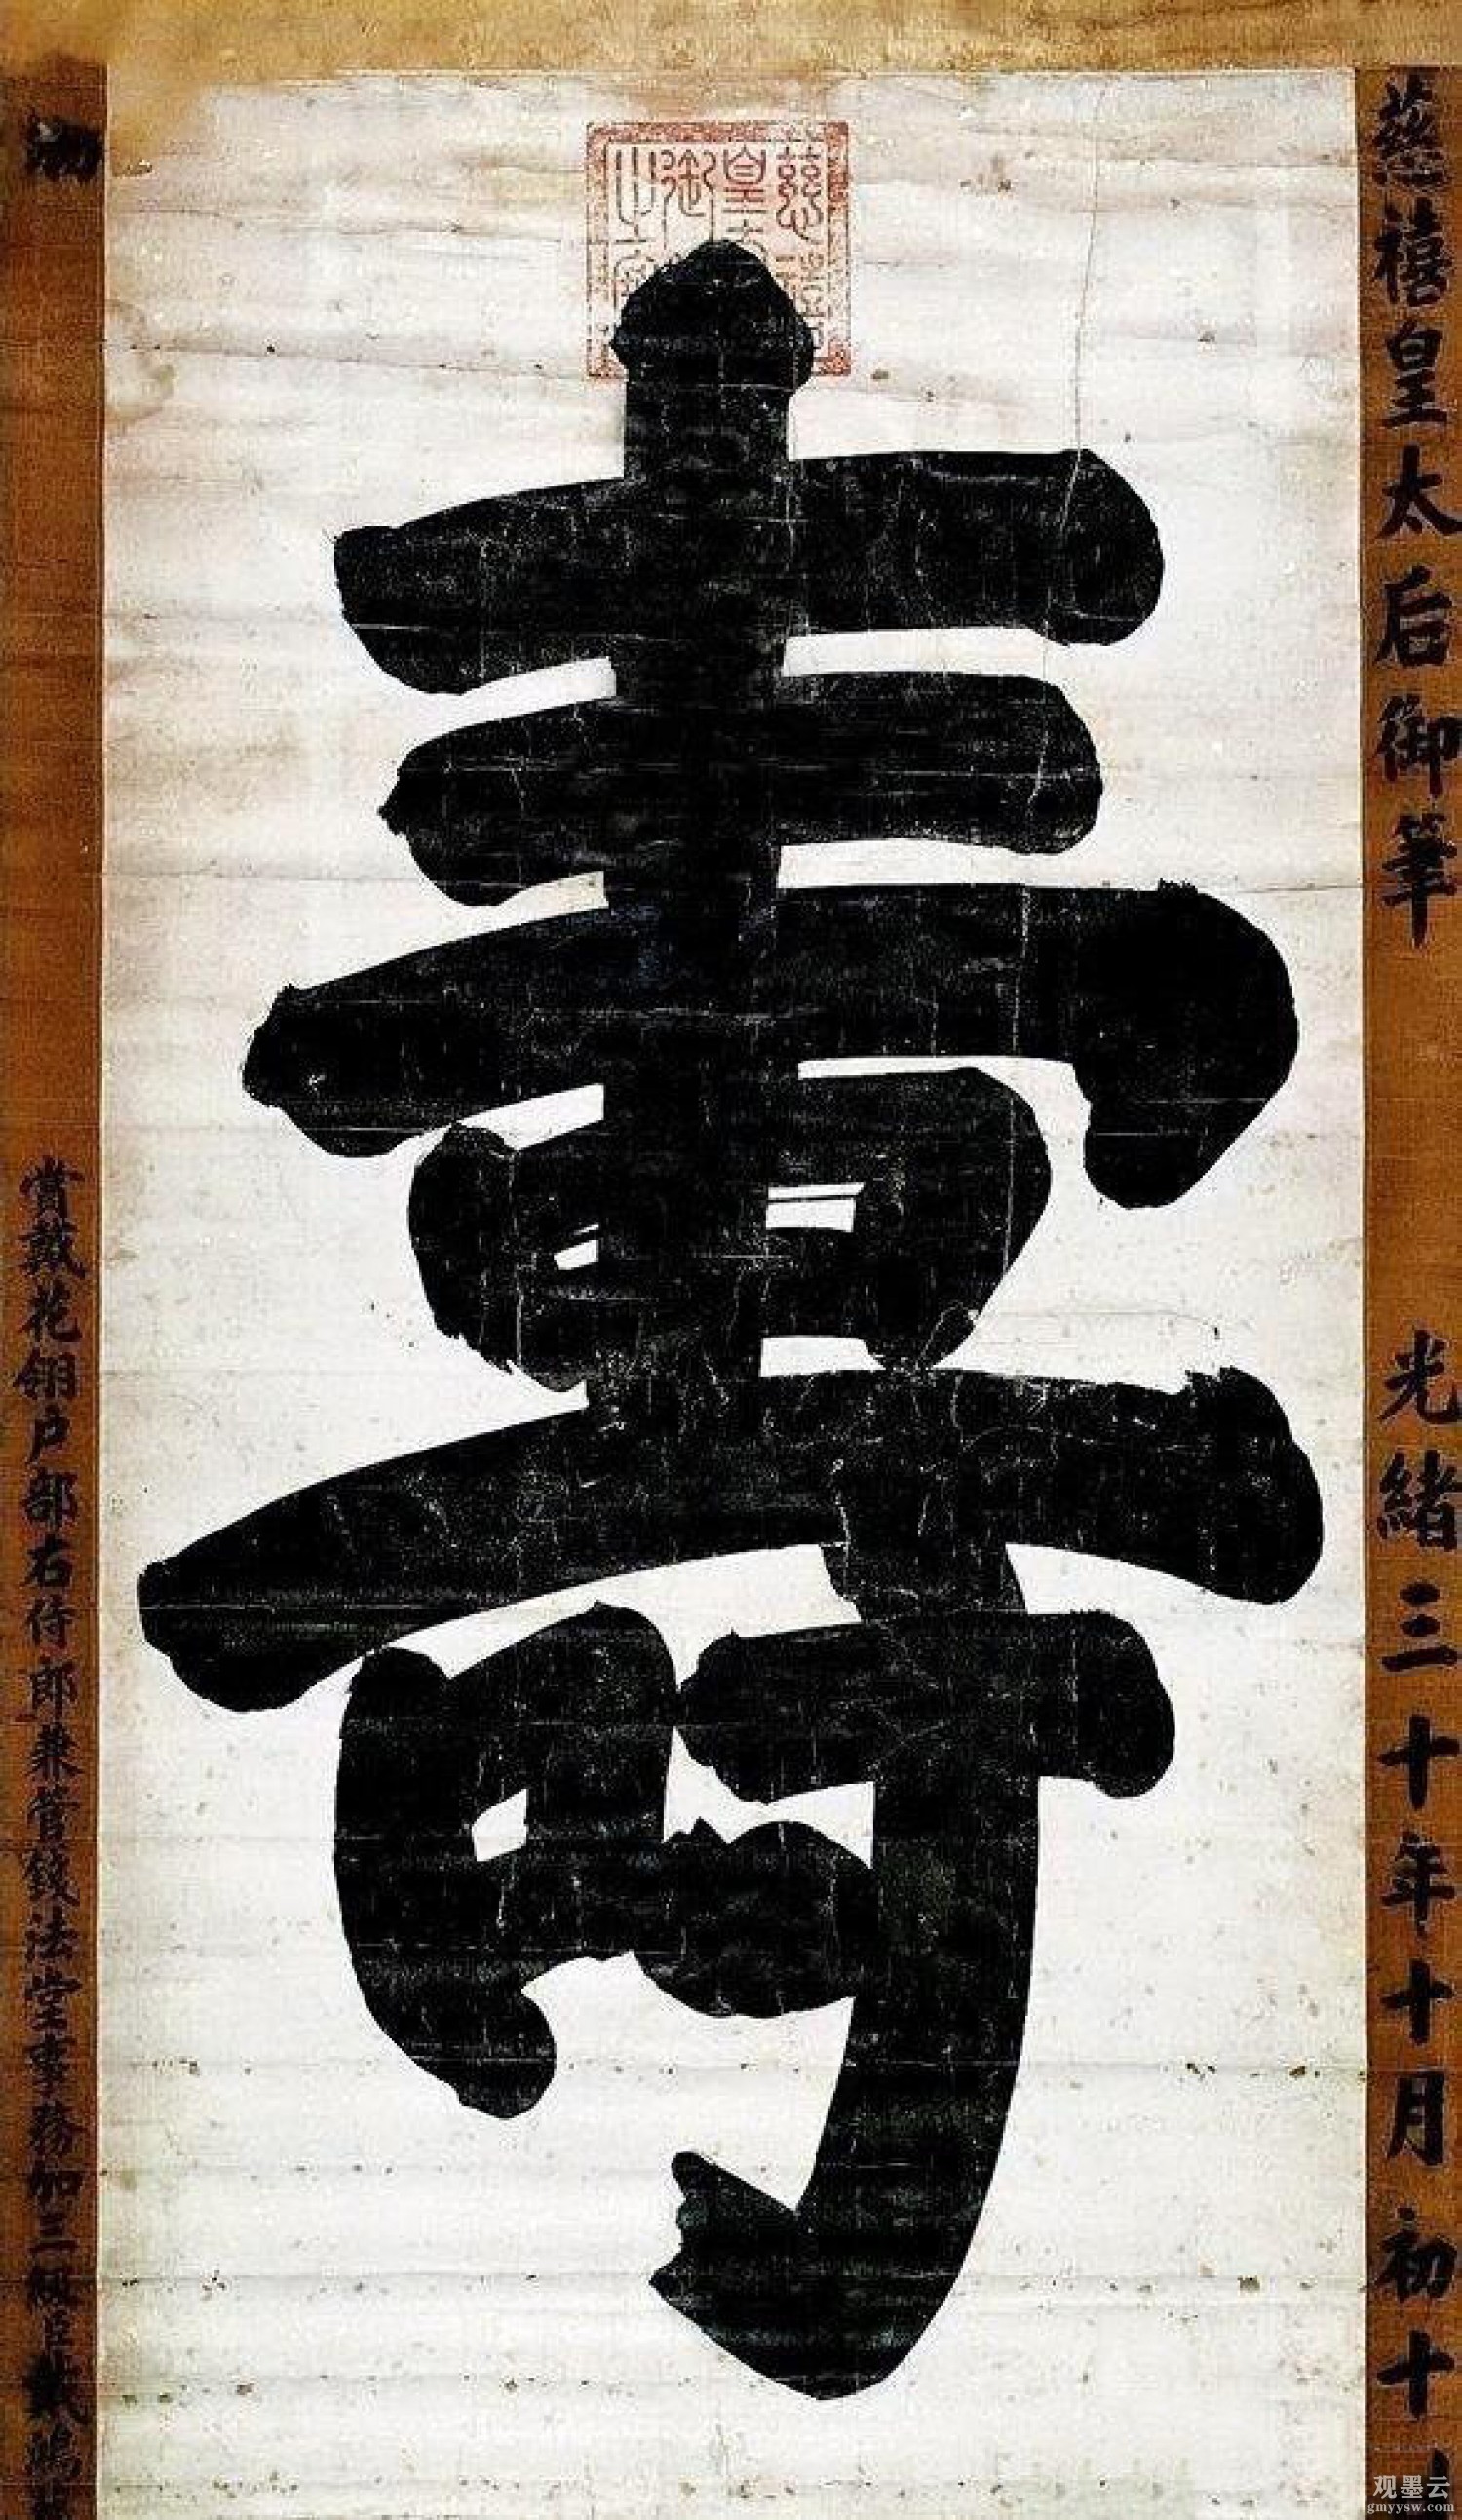 慈禧皇太后御筆 光緒三十年十月初十
慈禧皇太后御筆之寶
壽
勅
賞戴花翎户部右侍郎兼管錢法堂事務加三級臣戴鴻
观墨云
gmyysw.com